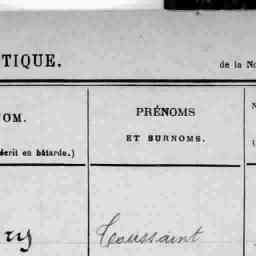 TIQUE. de la No
OM. PRÉNOMS
ET SURNOMS.
écrit en bâtarde.)
ry Toussaint